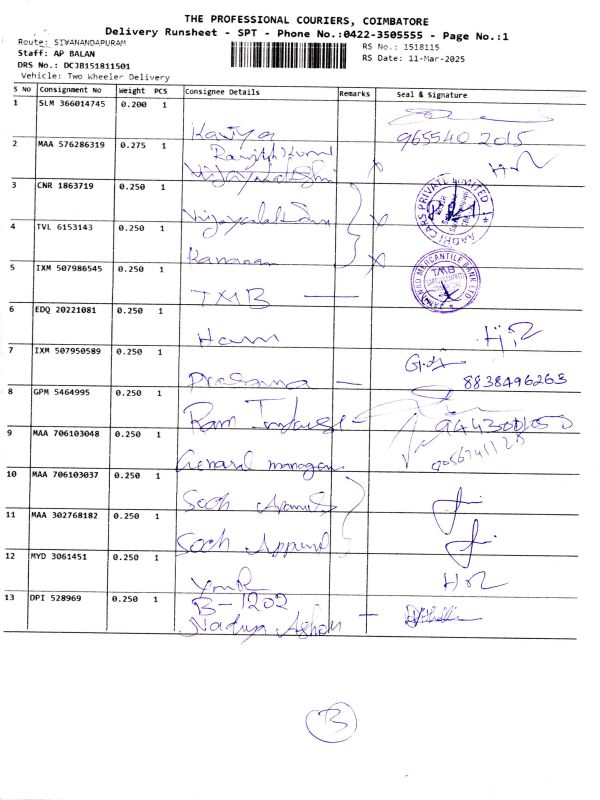 THE PROFESSIONAL COURIERS, COIMBATORE
Delivery Runsheet - SPT - Phone No.:0422-3505555 - Page No.:1
Route: SIVANANDAPURAM
RS No.: 1518115
Staff: AP BALAN
RS Date: 11-Mar-2025
DRS No.: DCJB151811501
Vehicle: Two Wheeler Delivery
S No Consignment No Weight PCS Consignee Details Remarks Seal & Signature
1 SLM 366014745 0.200 1
Kavya 965540 2015
2 MAA 576286319 0.275 1 Ranjith Kumar
Vijayalakshmi
3 CNR 1863719 0.250 1
Vijayalakshmi
AADHI CARS PRIVATE LIMITED
4 TVL 6153143 0.250 1
Kannan
5 IXM 507986545 0.250 1
TMB
TAMILNAD MERCANTILE BANK LTD
TMB
6 EDQ 20221081 0.250 1
7 IXM 507950589 0.250 1
Prasanna — 8838496263
8 GPM 5464995 0.250 1
Ram
9 MAA 706103048 0.250 1
General manager
10 MAA 706103037 0.250 1
11 MAA 302768182 0.250 1
12 MYD 3061451 0.250 1
YMR
13 DPI 528969 0.250 1 B-1202
Nadiya
B